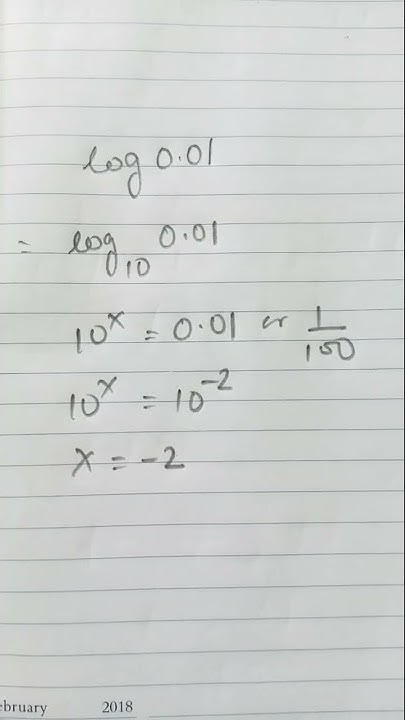 log 0.01
= log₁₀ 0.01
10ˣ = 0.01 or 1/100
10ˣ = 10⁻²
x = -2
ebruary 2018